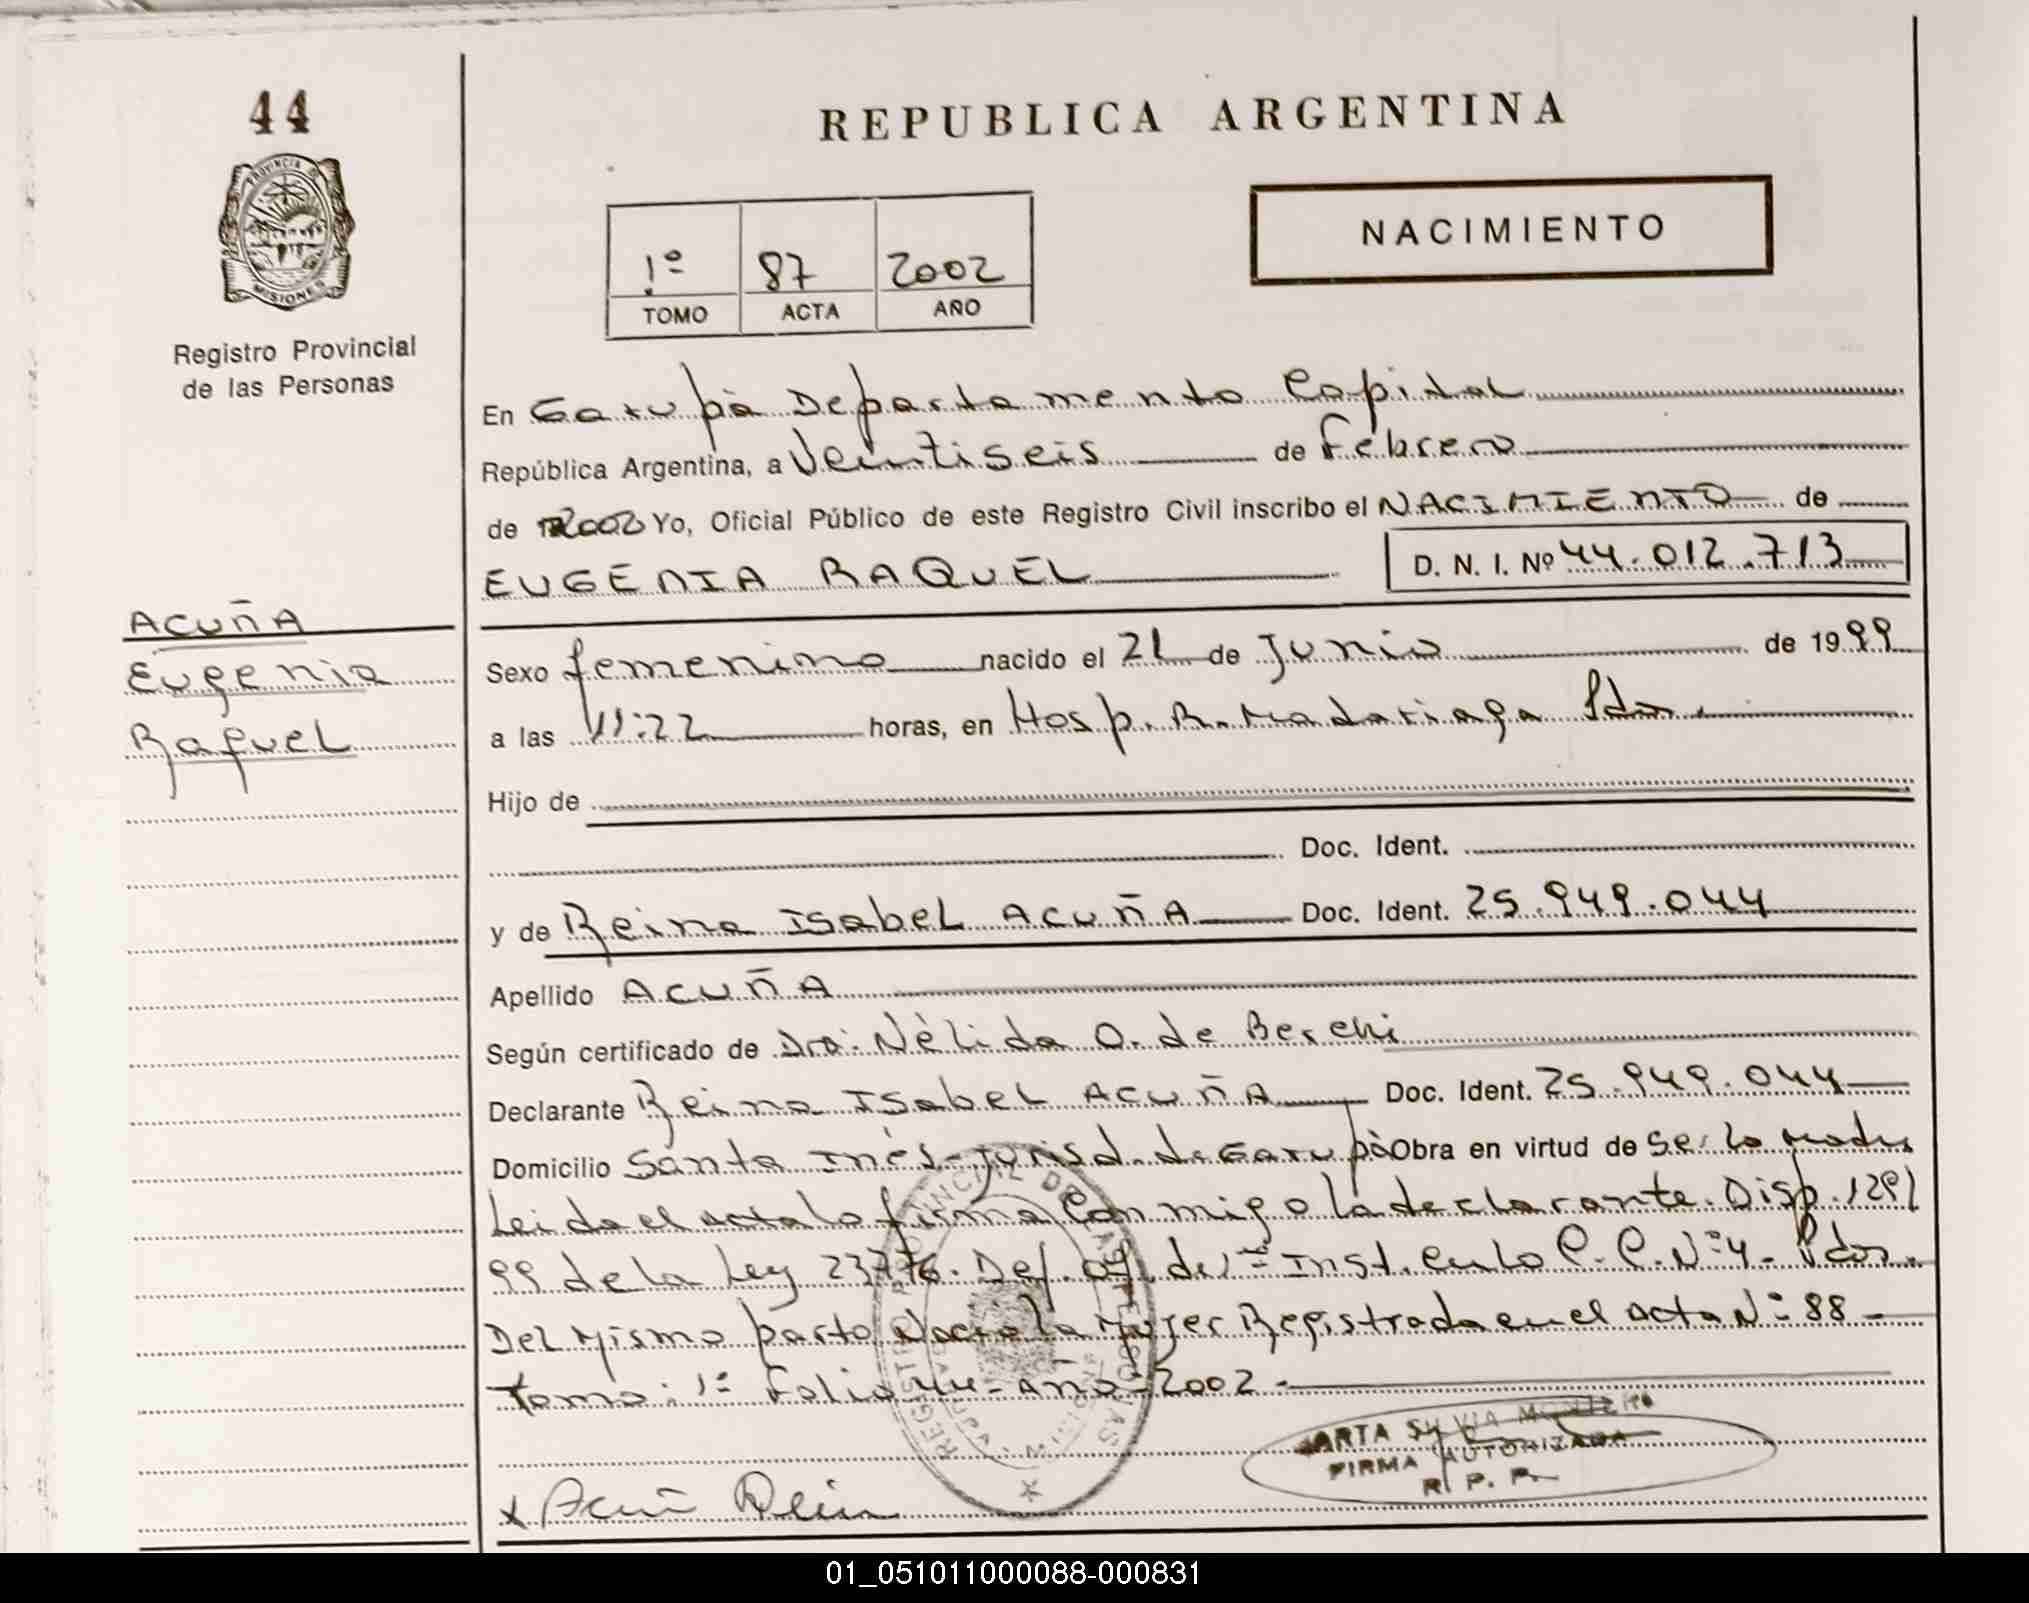 44
PROVINCIA DE
MISIONES
Registro Provincial
de las Personas
REPUBLICA ARGENTINA
NACIMIENTO
1º 87 2002
TOMO ACTA AÑO
En Garupà Departamento Capital
República Argentina, a Veintiseis de Febrero
de 2002 Yo, Oficial Público de este Registro Civil inscribo el NACIMIENTO de
EUGENIA RAQUEL D. N. I. Nº 44.012.713
ACUÑA
Eugenia
Raquel
Sexo femenino nacido el 21 de Junio de 1999
a las 11:22 horas, en Hosp. R. Madariaga Pdas.
Hijo de
Doc. Ident.
y de Reina Isabel ACUÑA Doc. Ident. 25.949.044
Apellido ACUÑA
Según certificado de Dra. Nèlida O. de
Declarante Reina Isabel ACUÑA Doc. Ident. 25.949.044
Domicilio Santa Inès-Jurisd. de Garupà Obra en virtud de ser la madre
Leida el acta la firma conmigo la declarante. Disp. 129/
99 de la Ley 23776. Def. Of. de 1º Inst. en lo C. C. Nº 4- Pdas.
Del mismo parto Naciò la mujer Registrada en el acta Nº 88-
Tomo: 1º Folio 44- Año-2002-
REGISTRO PROVINCIAL DE LAS PERSONAS
MARTA SILVIA MONTERO
FIRMA AUTORIZADA
R. P. P.
x Acuña Reina
01_051011000088-000831